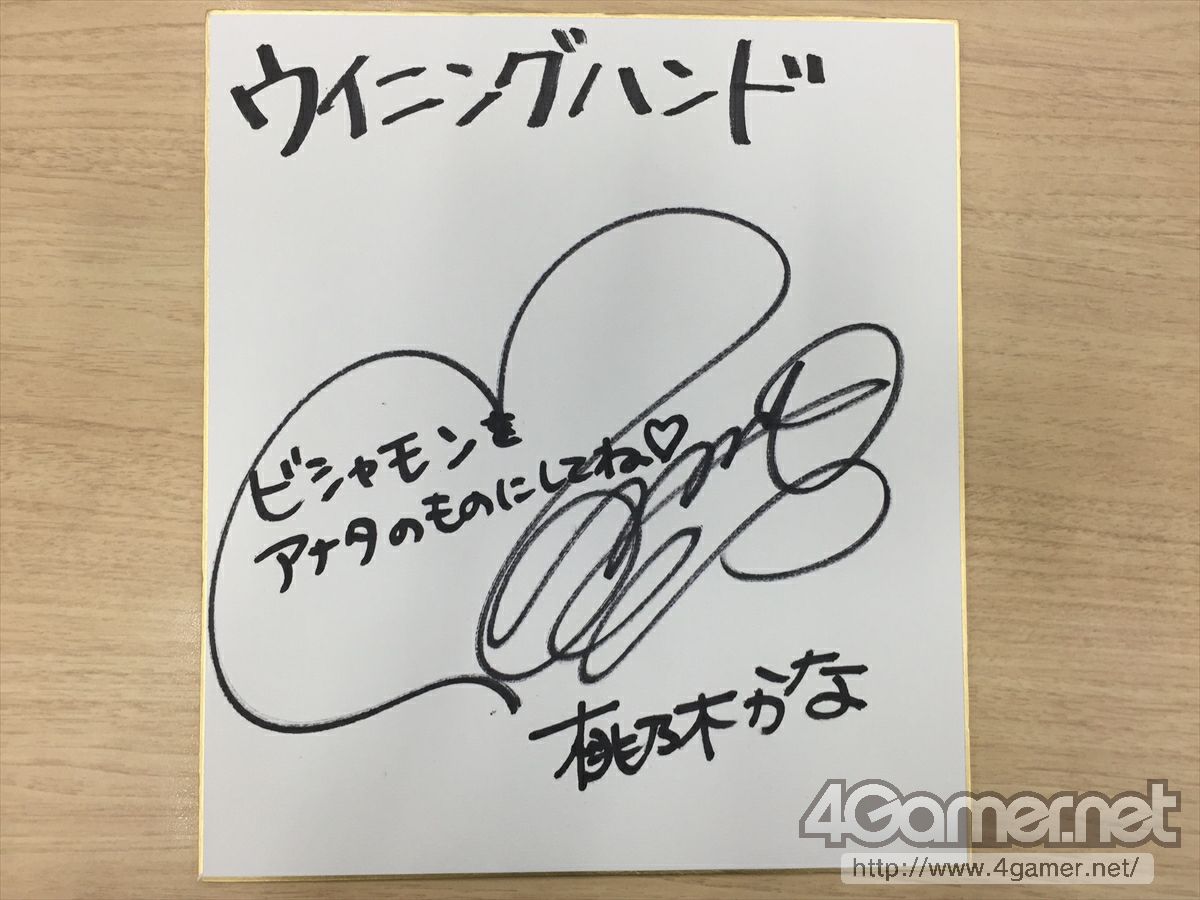 ウイニングハンド
ビシャモンを
アナタのものにしてね♡
桃乃木かな
4Gamer.net
http://www.4gamer.net/